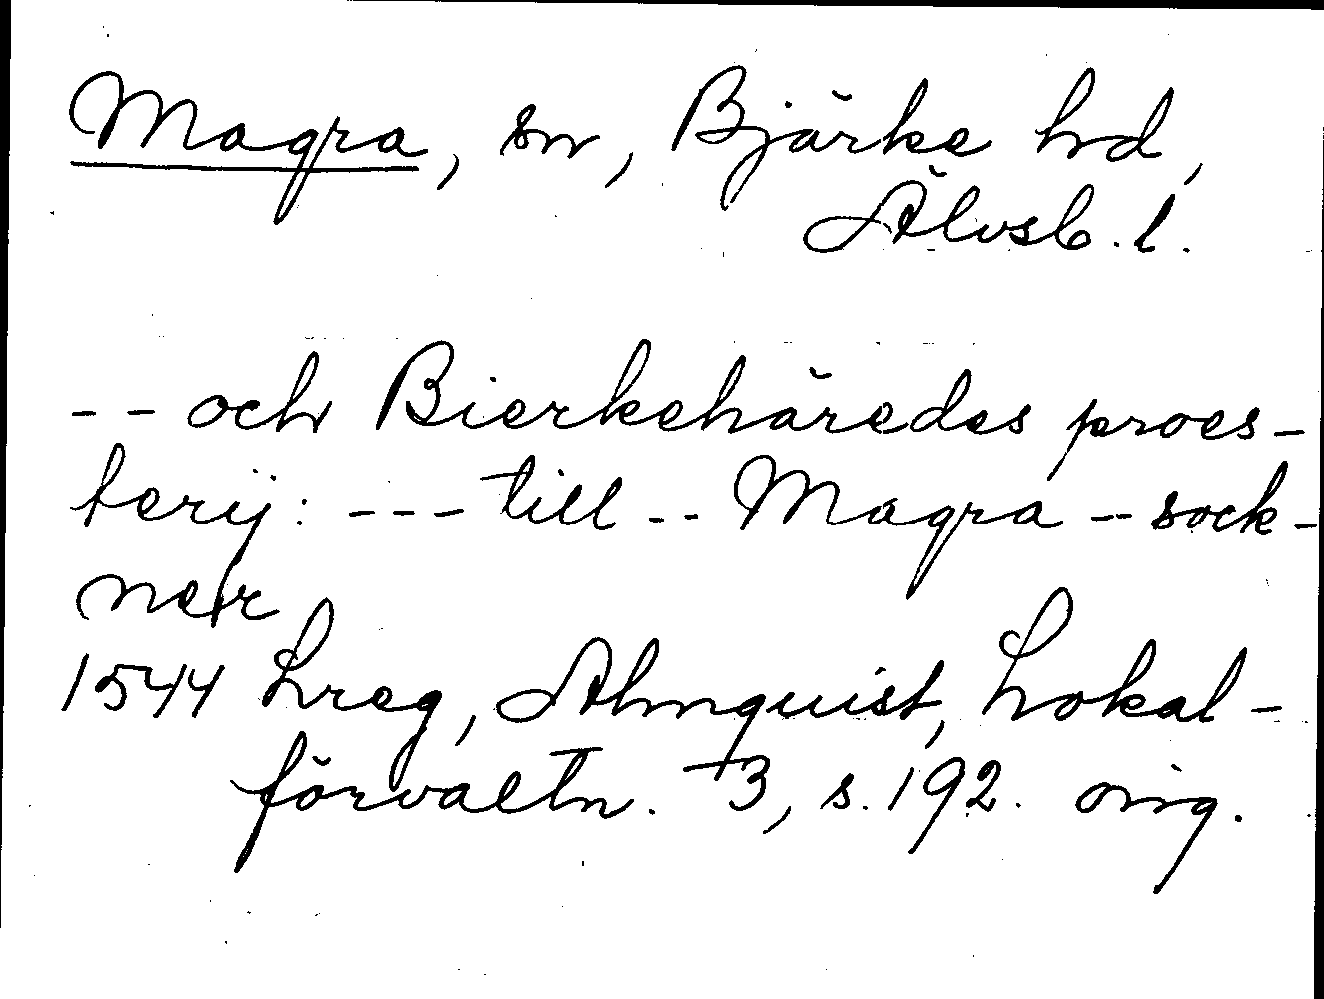 Magra, sn, Bjärke hd,
Älvsb. l.
-- och Bierkehäredes proes-
terij: --- till -- Magra -- sock-
ner
1544 Lreg, Almquist, Lokal-
förvaltn. 3, s. 192. orig.